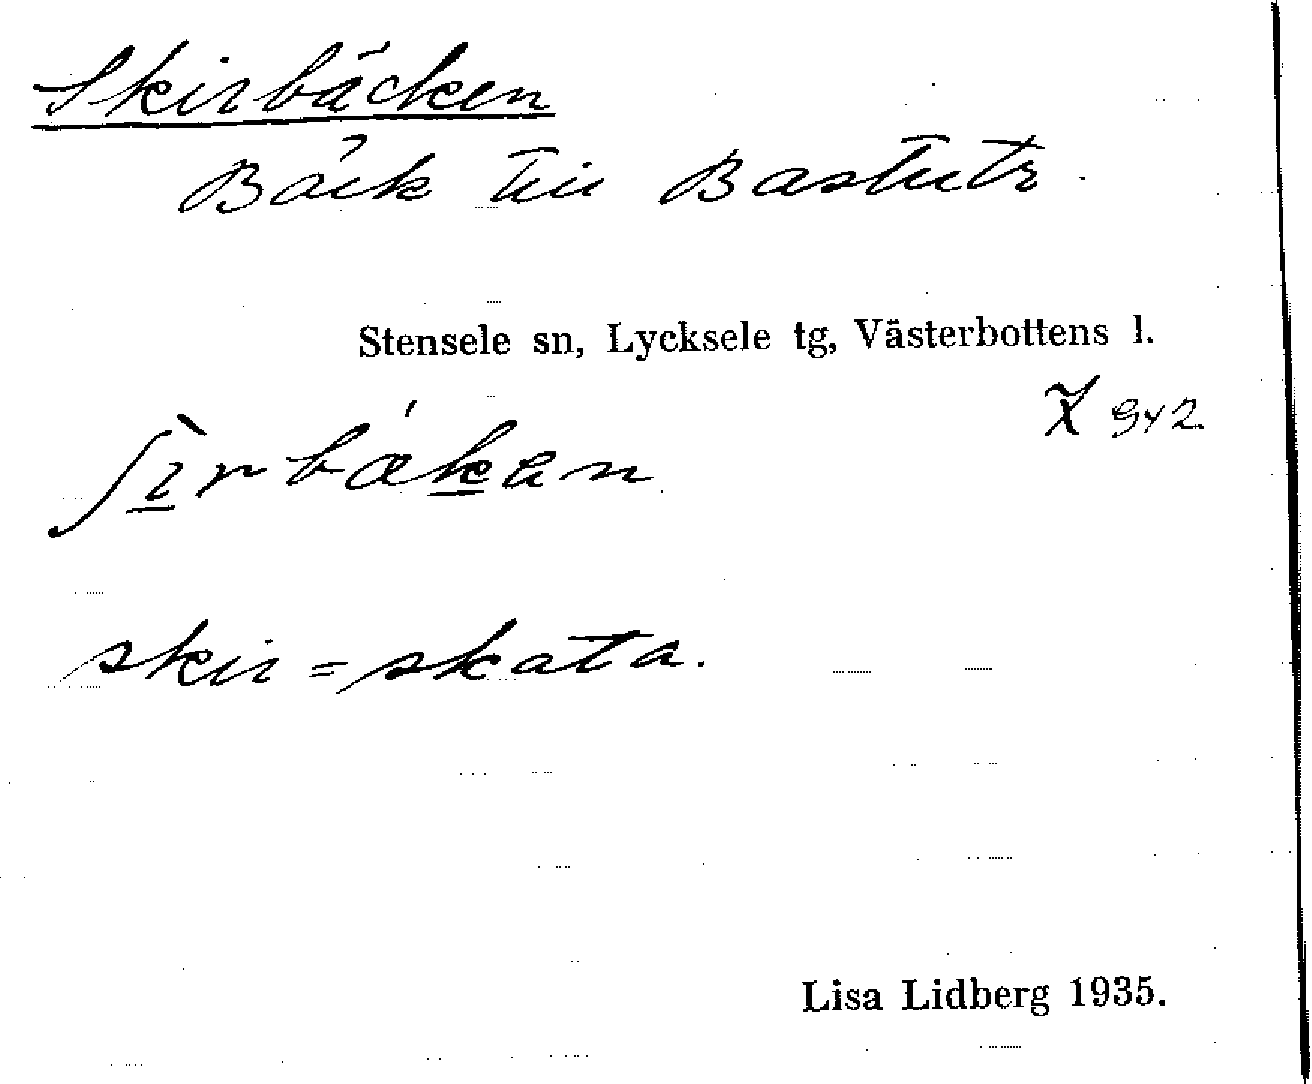 Skirbäcken
Bäck till Bastutr.
Stensele sn, Lycksele tg, Västerbottens l.
942
ʃɪ̀rbǽkan
skir = skata.
Lisa Lidberg 1935.